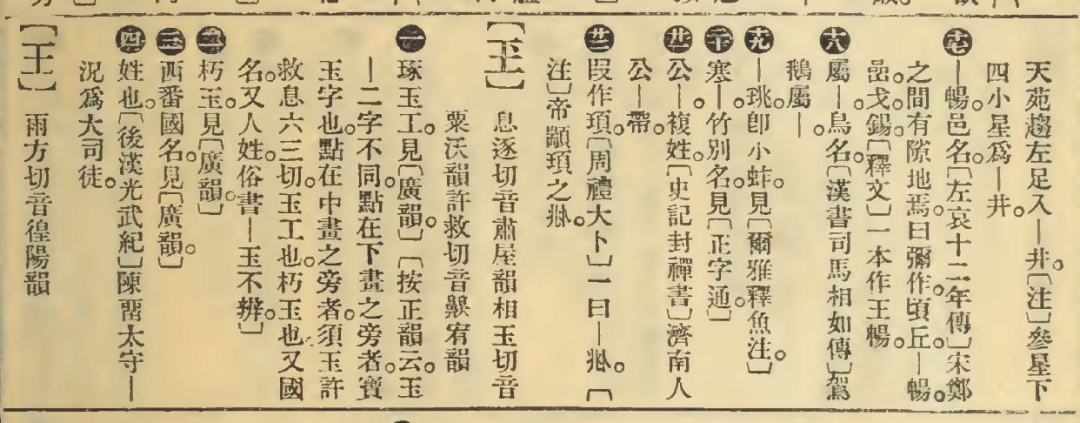 天苑趨左足入—井。〔注〕參星下
四小星爲—井。
十七—暢邑名。〔左哀十二年傳〕宋鄭
之間有隙地焉曰彌作。頃丘。—暢。
嵒。戈。鍚。〔釋文〕一本作王暢。
十八屬—鳥名。〔漢書司馬相如傳〕鴐
鵝屬—。
十九—珧卽小蚌。見〔爾雅釋魚注。〕
二十寒—。竹別名。見〔正字通。〕
廿一公—。複姓。〔史記封禪書〕濟南人
公—帶。
廿二叚作頊。〔周禮大卜〕二曰—𠧞。〔
注〕帝顓頊之𠧞。
【玊】息逐切音肅屋韻相玉切音
粟沃韻許救切音齅宥韻
一琢玉工。見〔廣韻。〕〔按正韻云。玉
—二字不同。點在下畫之旁者。寶
玉字也。點在中畫之旁者。須玉許
救息六三切。玉工也。朽玉也。又國
名。又人姓。俗書—玉不辨。〕
二朽玉。見〔廣韻〕
三西番國名。見〔廣韻。〕
四姓也。〔後漢光武紀〕陳留太守—
況爲大司徒。
【王】雨方切音徨陽韻